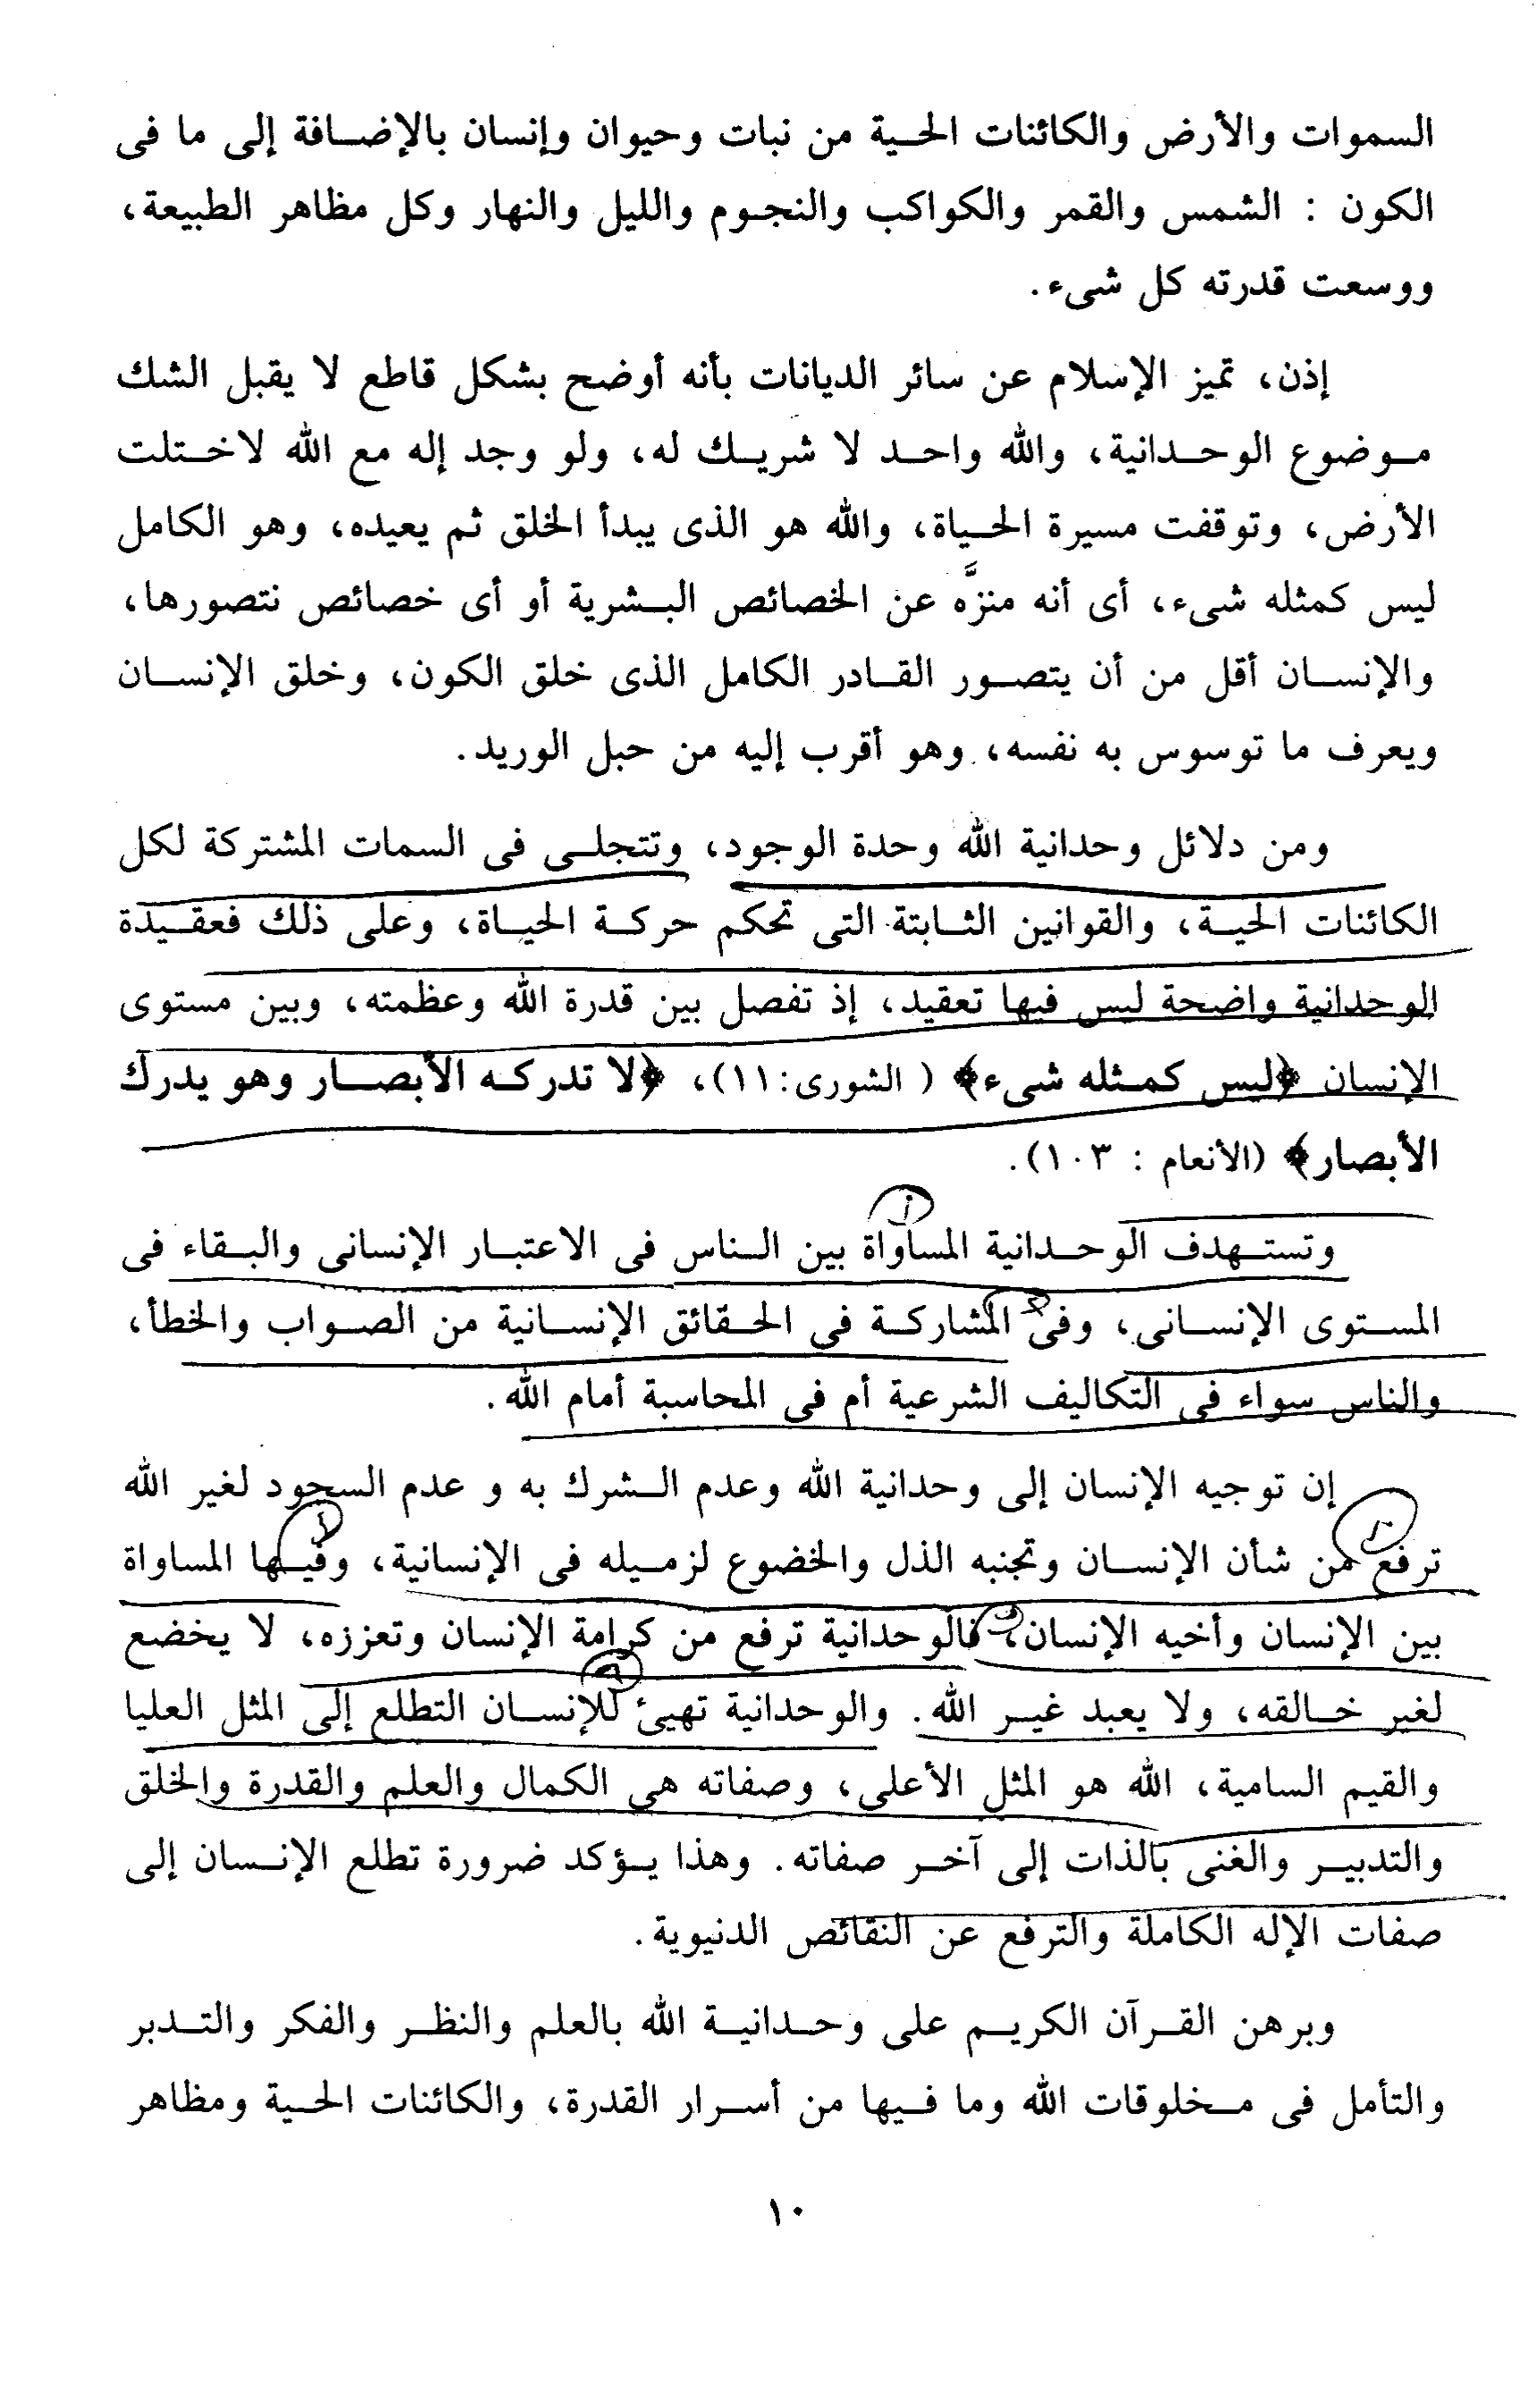 السموات والأرض والكائنات الحية من نبات وحيوان وإنسان بالإضافة إلى ما فى
الكون : الشمس والقمر والكواكب والنجوم والليل والنهار وكل مظاهر الطبيعة،
ووسعت قدرته كل شىء.
إذن، تميز الإسلام عن سائر الديانات بأنه أوضح بشكل قاطع لا يقبل الشك
موضوع الوحدانية، والله واحد لا شريك له، ولو وجد إله مع الله لاختلت
الأرض، وتوقفت مسيرة الحياة، والله هو الذى يبدأ الخلق ثم يعيده، وهو الكامل
ليس كمثله شىء، أى أنه منزَّه عن الخصائص البشرية أو أى خصائص نتصورها،
والإنسان أقل من أن يتصور القادر الكامل الذى خلق الكون، وخلق الإنسان
ويعرف ما توسوس به نفسه، وهو أقرب إليه من حبل الوريد.
ومن دلائل وحدانية الله وحدة الوجود، وتتجلى فى السمات المشتركة لكل
الكائنات الحية، والقوانين الثابتة التى تحكم حركة الحياة، وعلى ذلك فعقيدة
الوحدانية واضحة ليس فيها تعقيد، إذ تفصل بين قدرة الله وعظمته، وبين مستوى
الإنسان ﴿ليس كمثله شىء﴾ ( الشورى: ١١)، ﴿لا تدركه الأبصار وهو يدرك
الأبصار﴾ (الأنعام : ١٠٣).
وتستهدف الوحدانية المساواة بين الناس فى الاعتبار الإنسانى والبقاء فى
المستوى الإنسانى، وفى المشاركة فى الحقائق الإنسانية من الصواب والخطأ،
والناس سواء فى التكاليف الشرعية أم فى المحاسبة أمام الله.
إن توجيه الإنسان إلى وحدانية الله وعدم الشرك به و عدم السجود لغير الله
ترفع من شأن الإنسان وتجنبه الذل والخضوع لزميله فى الإنسانية، وفيها المساواة
بين الإنسان وأخيه الإنسان، فالوحدانية ترفع من كرامة الإنسان وتعززه، لا يخضع
لغير خالقه، ولا يعبد غير الله. والوحدانية تهيئ للإنسان التطلع إلى المثل العليا
والقيم السامية، الله هو المثل الأعلى، وصفاته هى الكمال والعلم والقدرة والخلق
والتدبير والغنى بالذات إلى آخر صفاته. وهذا يؤكد ضرورة تطلع الإنسان إلى
صفات الإله الكاملة والترفع عن النقائص الدنيوية.
وبرهن القرآن الكريم على وحدانية الله بالعلم والنظر والفكر والتدبر
والتأمل فى مخلوقات الله وما فيها من أسرار القدرة، والكائنات الحية ومظاهر
١٠